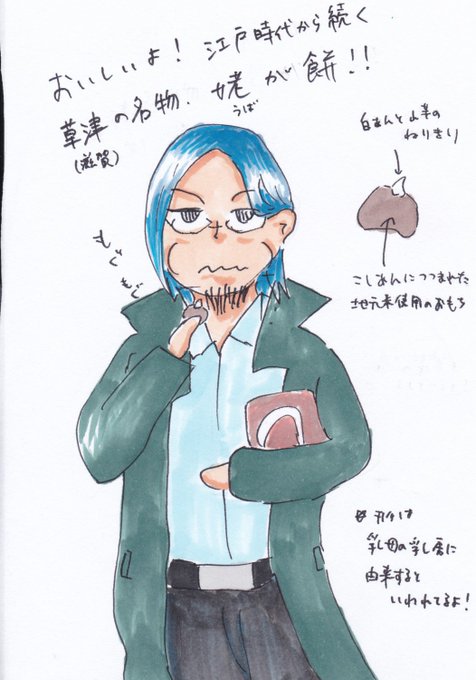 おいしいよ！江戸時代から続く
草津の名物、姥が餅!!
(滋賀)
うば
白あんと山芋の
ねりきり
もぐ
もぐ
こしあんにつつまれた
地元米使用のおもち
乳母の乳房に
由来すると
いわれてるよ！